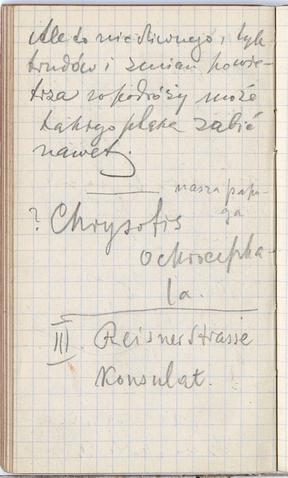 Ale to nic dziwnego, tyle
trudów i zmian powie-
trza w podróży może
takiego ptaka zabić
nawet.
nasza papu-
ga
? Chrysotis
ochrocepha-
la.
III. Reisner Strasse
Konsulat.